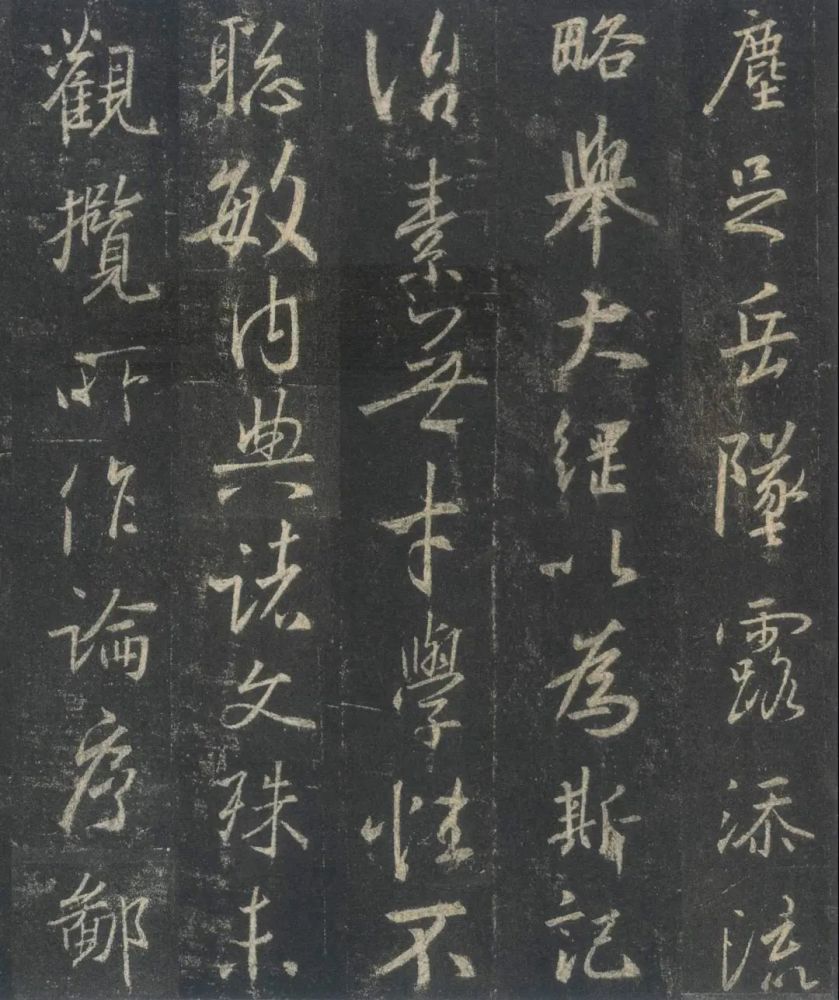 塵足岳墜露添流
略舉大綱以為斯記
治素無才學性不
聡敏内典諸文殊未
觀攬所作論序鄙